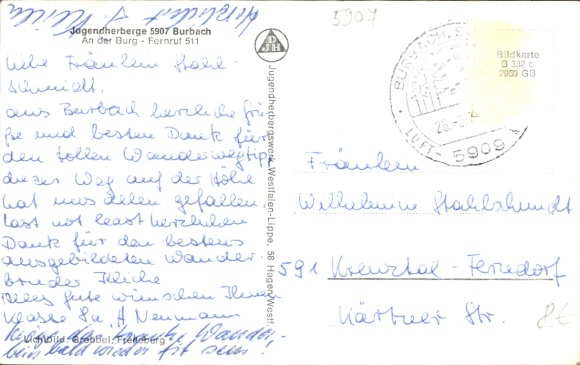 Herzlichst
Jugendherberge 5907 Burbach
An der Burg - Fernruf 511
Liebe Fräulein Stahl-
schmidt,
aus Burbach herzliche Grü-
ße und besten Dank für
den tollen Wanderwegtip
dieser Weg auf der Höhe
hat uns allen gefallen.
Last not least herzlichen
Dank für den bestens
ausgebildeten Wander-
bruder Kliche
Alles Gute wünschen Ihnen
Klasse 8a, H. Neumann
Wander-
bald wieder fit sein!
Lichtbild: Grobbel, Fredeburg
Jugendherbergswerk Westfalen-Lippe, 58 Hagen/Westf.
5907
BURBACH,
LUFT-
5909
Bildkarte
B 302 c
2809 GB
Fräulein
Wilhelmine Stahlschmidt
591 Kreuztal-Ferndorf
Kärtner Str.
8€